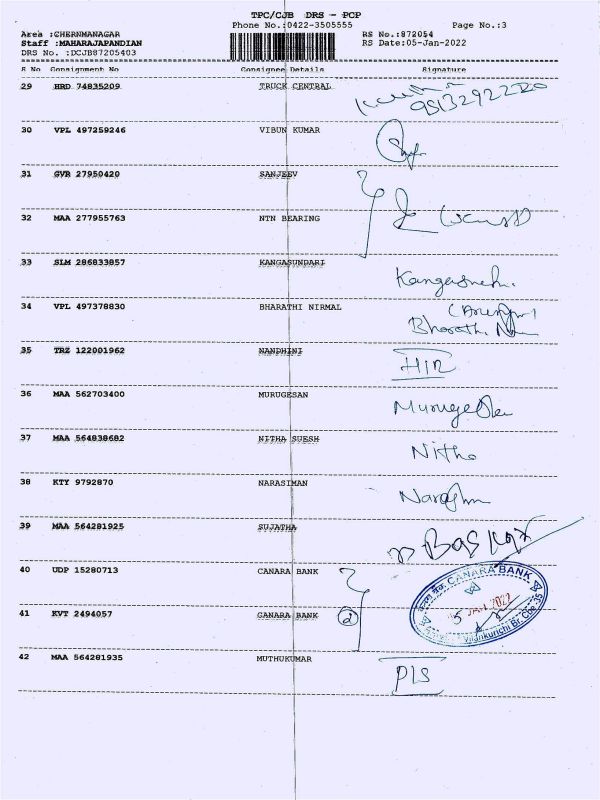 TPC/CJB DRS - PCP
Phone No.:0422-3505555 Page No.:3
Area :CHERNMANAGAR RS No.:872054
Staff :MAHARAJAPANDIAN RS Date:05-Jan-2022
DRS No. :DCJB87205403
S No Consignment No Consignee Details Signature
29 HRD 74835209 TRUCK CENTRAL
9513292220
30 VPL 497259246 VIBUN KUMAR
31 GVR 27950420 SANJEEV
32 MAA 277955763 NTN BEARING
33 SLM 286833857 KANGASUNDARI
34 VPL 497378830 BHARATHI NIRMAL
Bharath
35 TRZ 122001962 NANDHINI
36 MAA 562703400 MURUGESAN
37 MAA 564838682 NITHA SUESH
Nitha
38 KTY 9792870 NARASIMAN
39 MAA 564281925 SUJATHA
40 UDP 15280713 CANARA BANK
CANARA BANK
41 KVT 2494057 CANARA BANK 2
5 JAN 2022
Vilankurichi Br. Cbe 35
42 MAA 564281935 MUTHUKUMAR